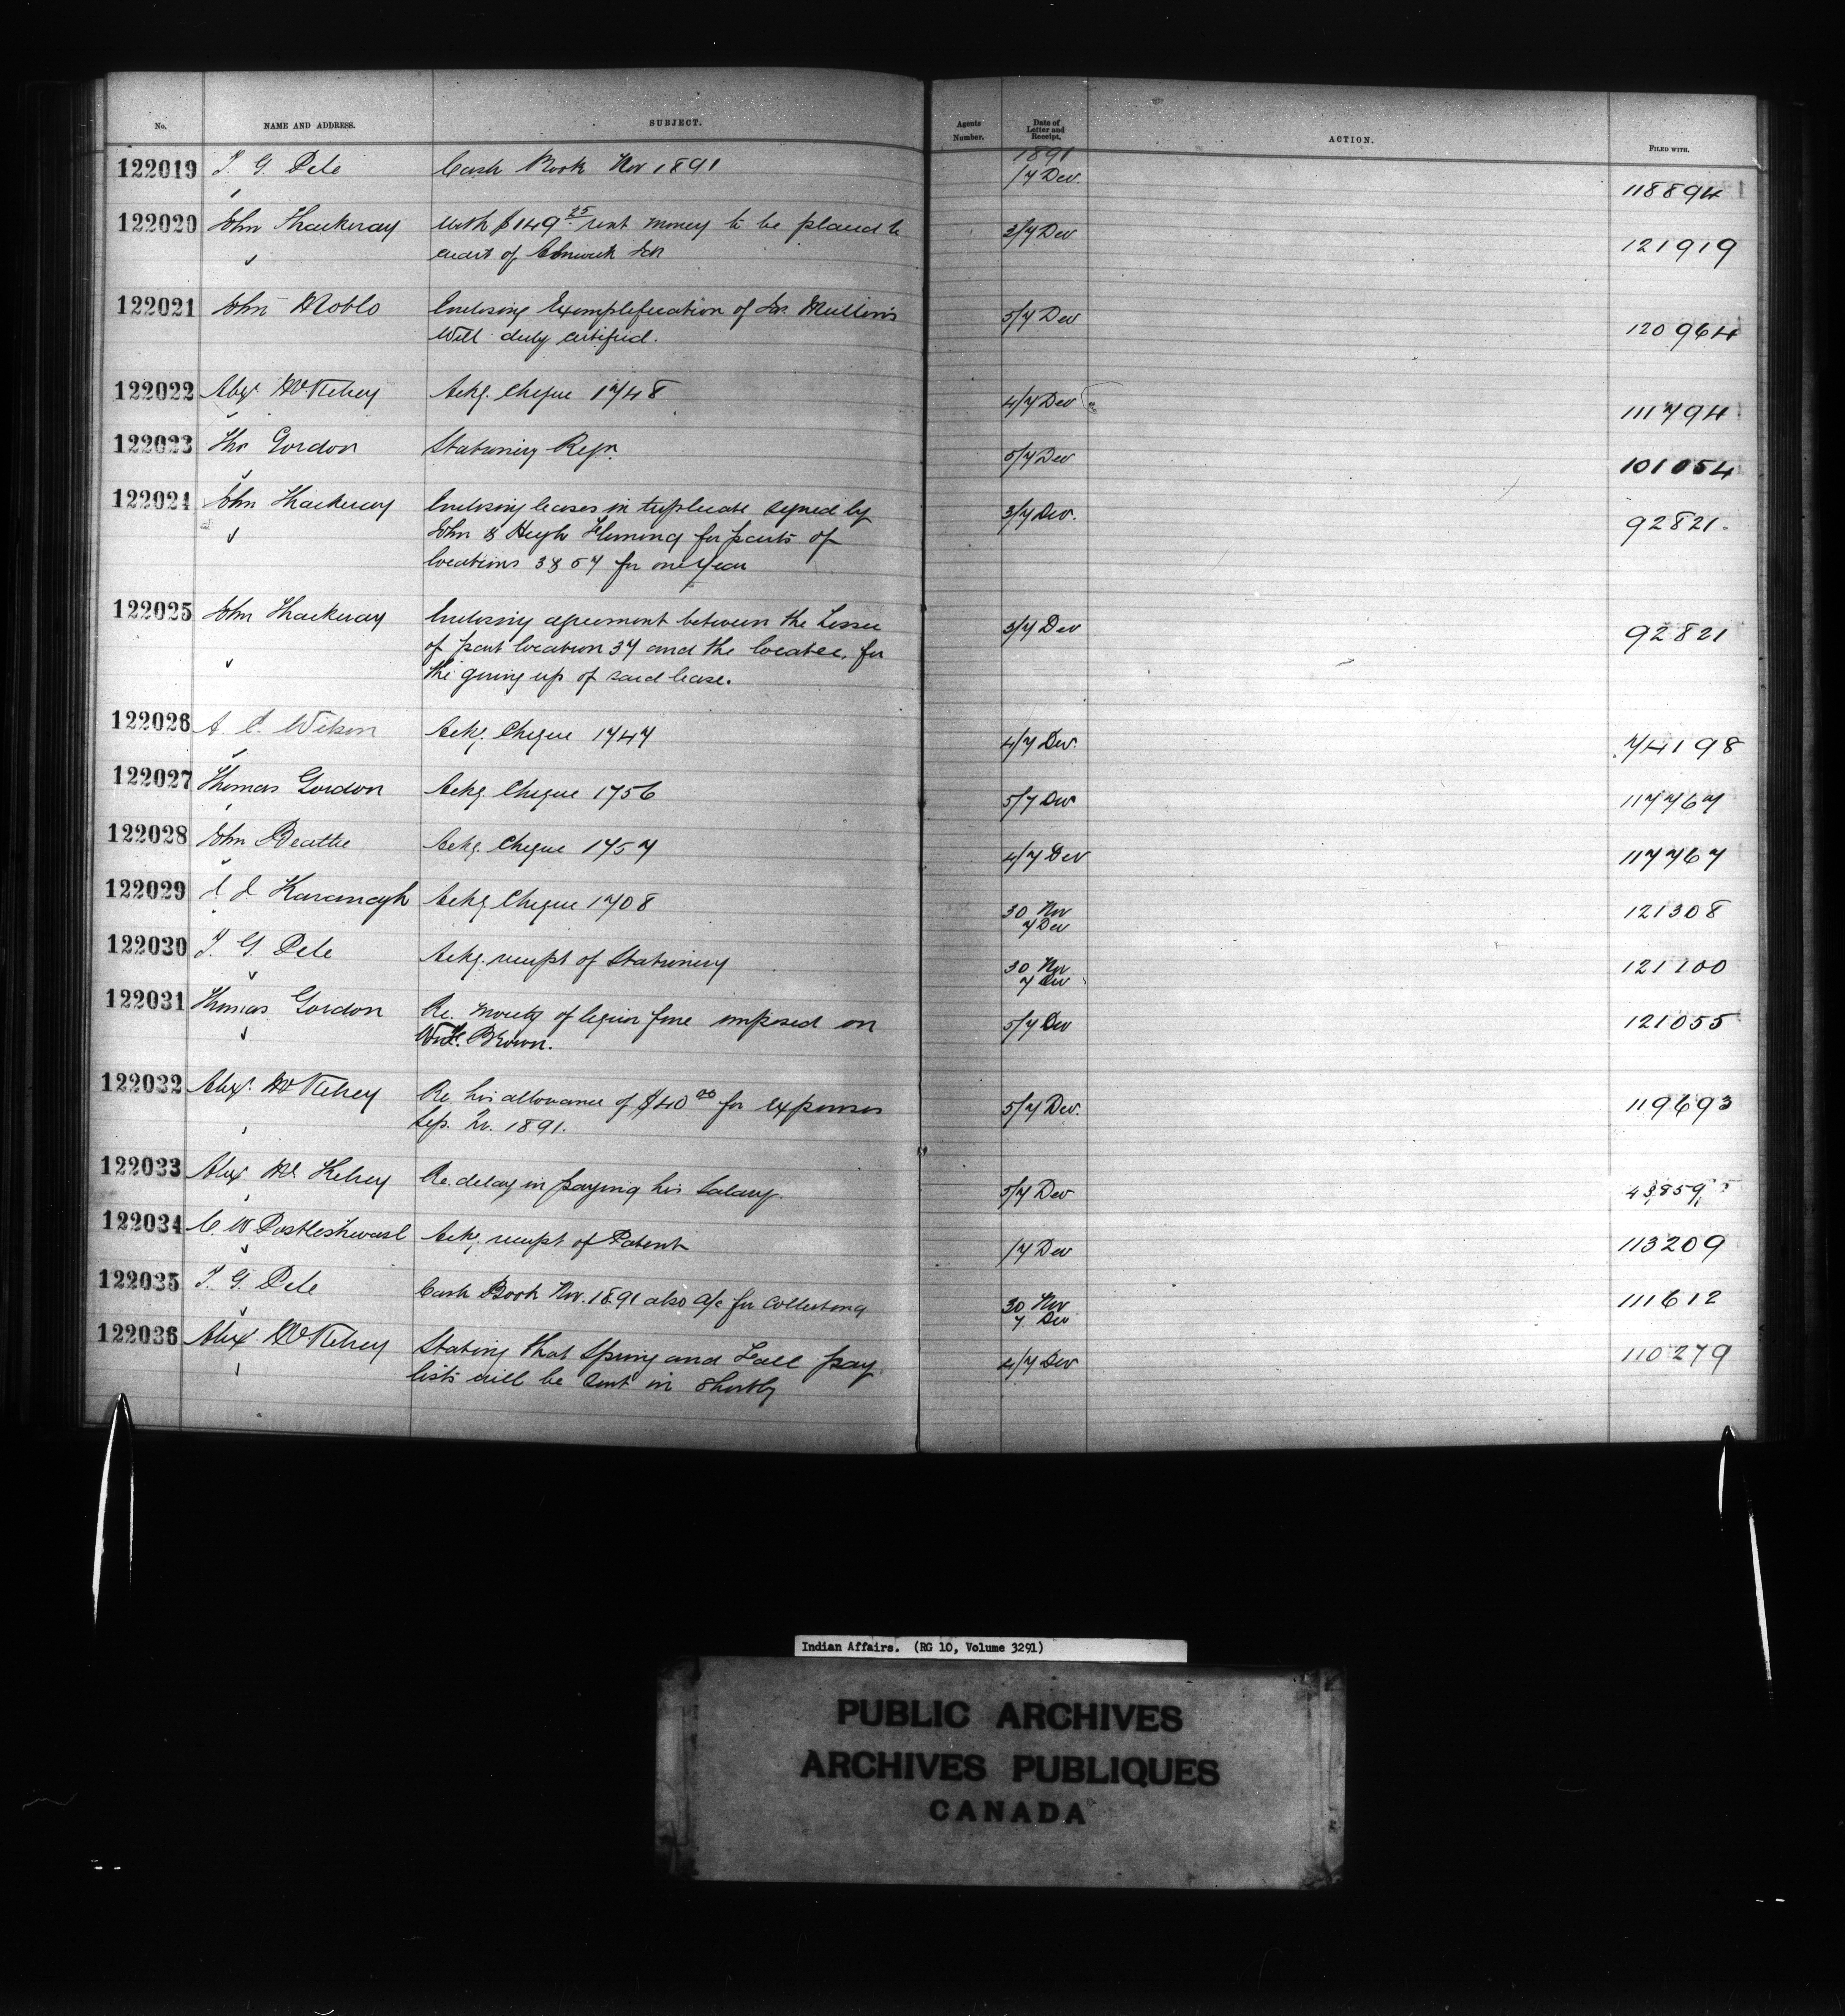 No. NAME AND ADDRESS. SUBJECT. Agents Number. Date of Letter and Receipt. ACTION. FILED WITH.
1891
122019 T. G. Pile Cash Book Nov 1891 1/7 Dec. 118894
122020 John Thackeray with $149 25 rent money to be placed to 3/7 Dec 121919
credit of Alnwick
122021 John Noble Enclosing Exemplification of Mullins 5/7 Dec 120964
Will duly certified.
122022 Alex. McKelvey Ackg. Cheque 1748 4/7 Dec 111794
122023 Thos Gordon Stationery Reqn. 5/7 Dec 101054
122024 John Thackeray Enclosing leases in triplicate signed by 3/7 Dec. 92821
John & Hugh Fleming for parts of
locations 38 57 for one year
122025 John Thackeray Enclosing agreement between the Lessee 3/7 Dec 92821
of part location 37 and the locatee, for
the giving up of said lease.
122026 A. Wilson Ackg. Cheque 1747 4/7 Dec. 74198
122027 Thomas Gordon Ackg. Cheque 1756 5/7 Dec 117767
122028 John Beattie Ackg. Cheque 1757 4/7 Dec 117767
122029 Kavanagh Ackg. Cheque 1708 30 Nov 121308
7 Dec
122030 T. G. Pile Ackg. receipt of Stationery 30 Nov 121100
7 Dec
122031 Thomas Gordon Re. moiety of liquor fine imposed on 5/7 Dec 121055
Brown.
122032 Alex. McKelvey Re. his allowance of $40 00 for expenses 5/7 Dec. 119693
Sep. Qr. 1891.
122033 Alex McKelvey Re. delay in paying his Salary. 5/7 Dec
122034 C. W Postlethwaite Ackg. receipt of Patent 1/7 Dec 113209
122035 T. G. Pile Cash Book Nov. 1891 also a/c for Collecting 30 Nov 111612
7 Dec
122036 Alex. McKelvey Stating that Spring and Fall pay 4/7 Dec 110279
lists will be sent in shortly
Indian Affairs. (RG 10, Volume 3291)
PUBLIC ARCHIVES
ARCHIVES PUBLIQUES
CANADA